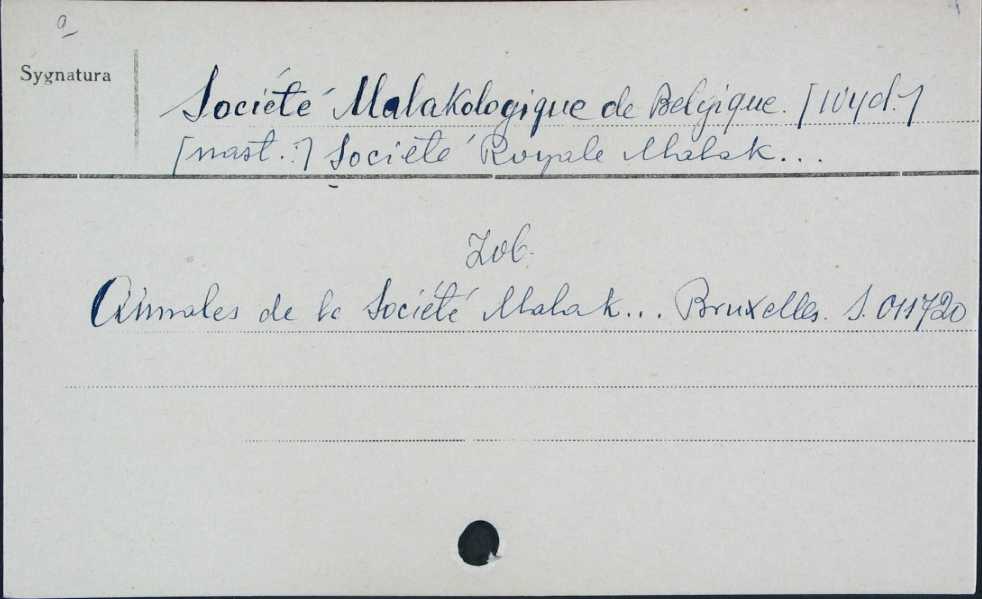 a
Sygnatura
Société Malakologique de Belgique. [wyd.]
[nast.:] Société Royale Malak...
Zob.
Annales de la Société Malak... Bruxelles. S. 011720